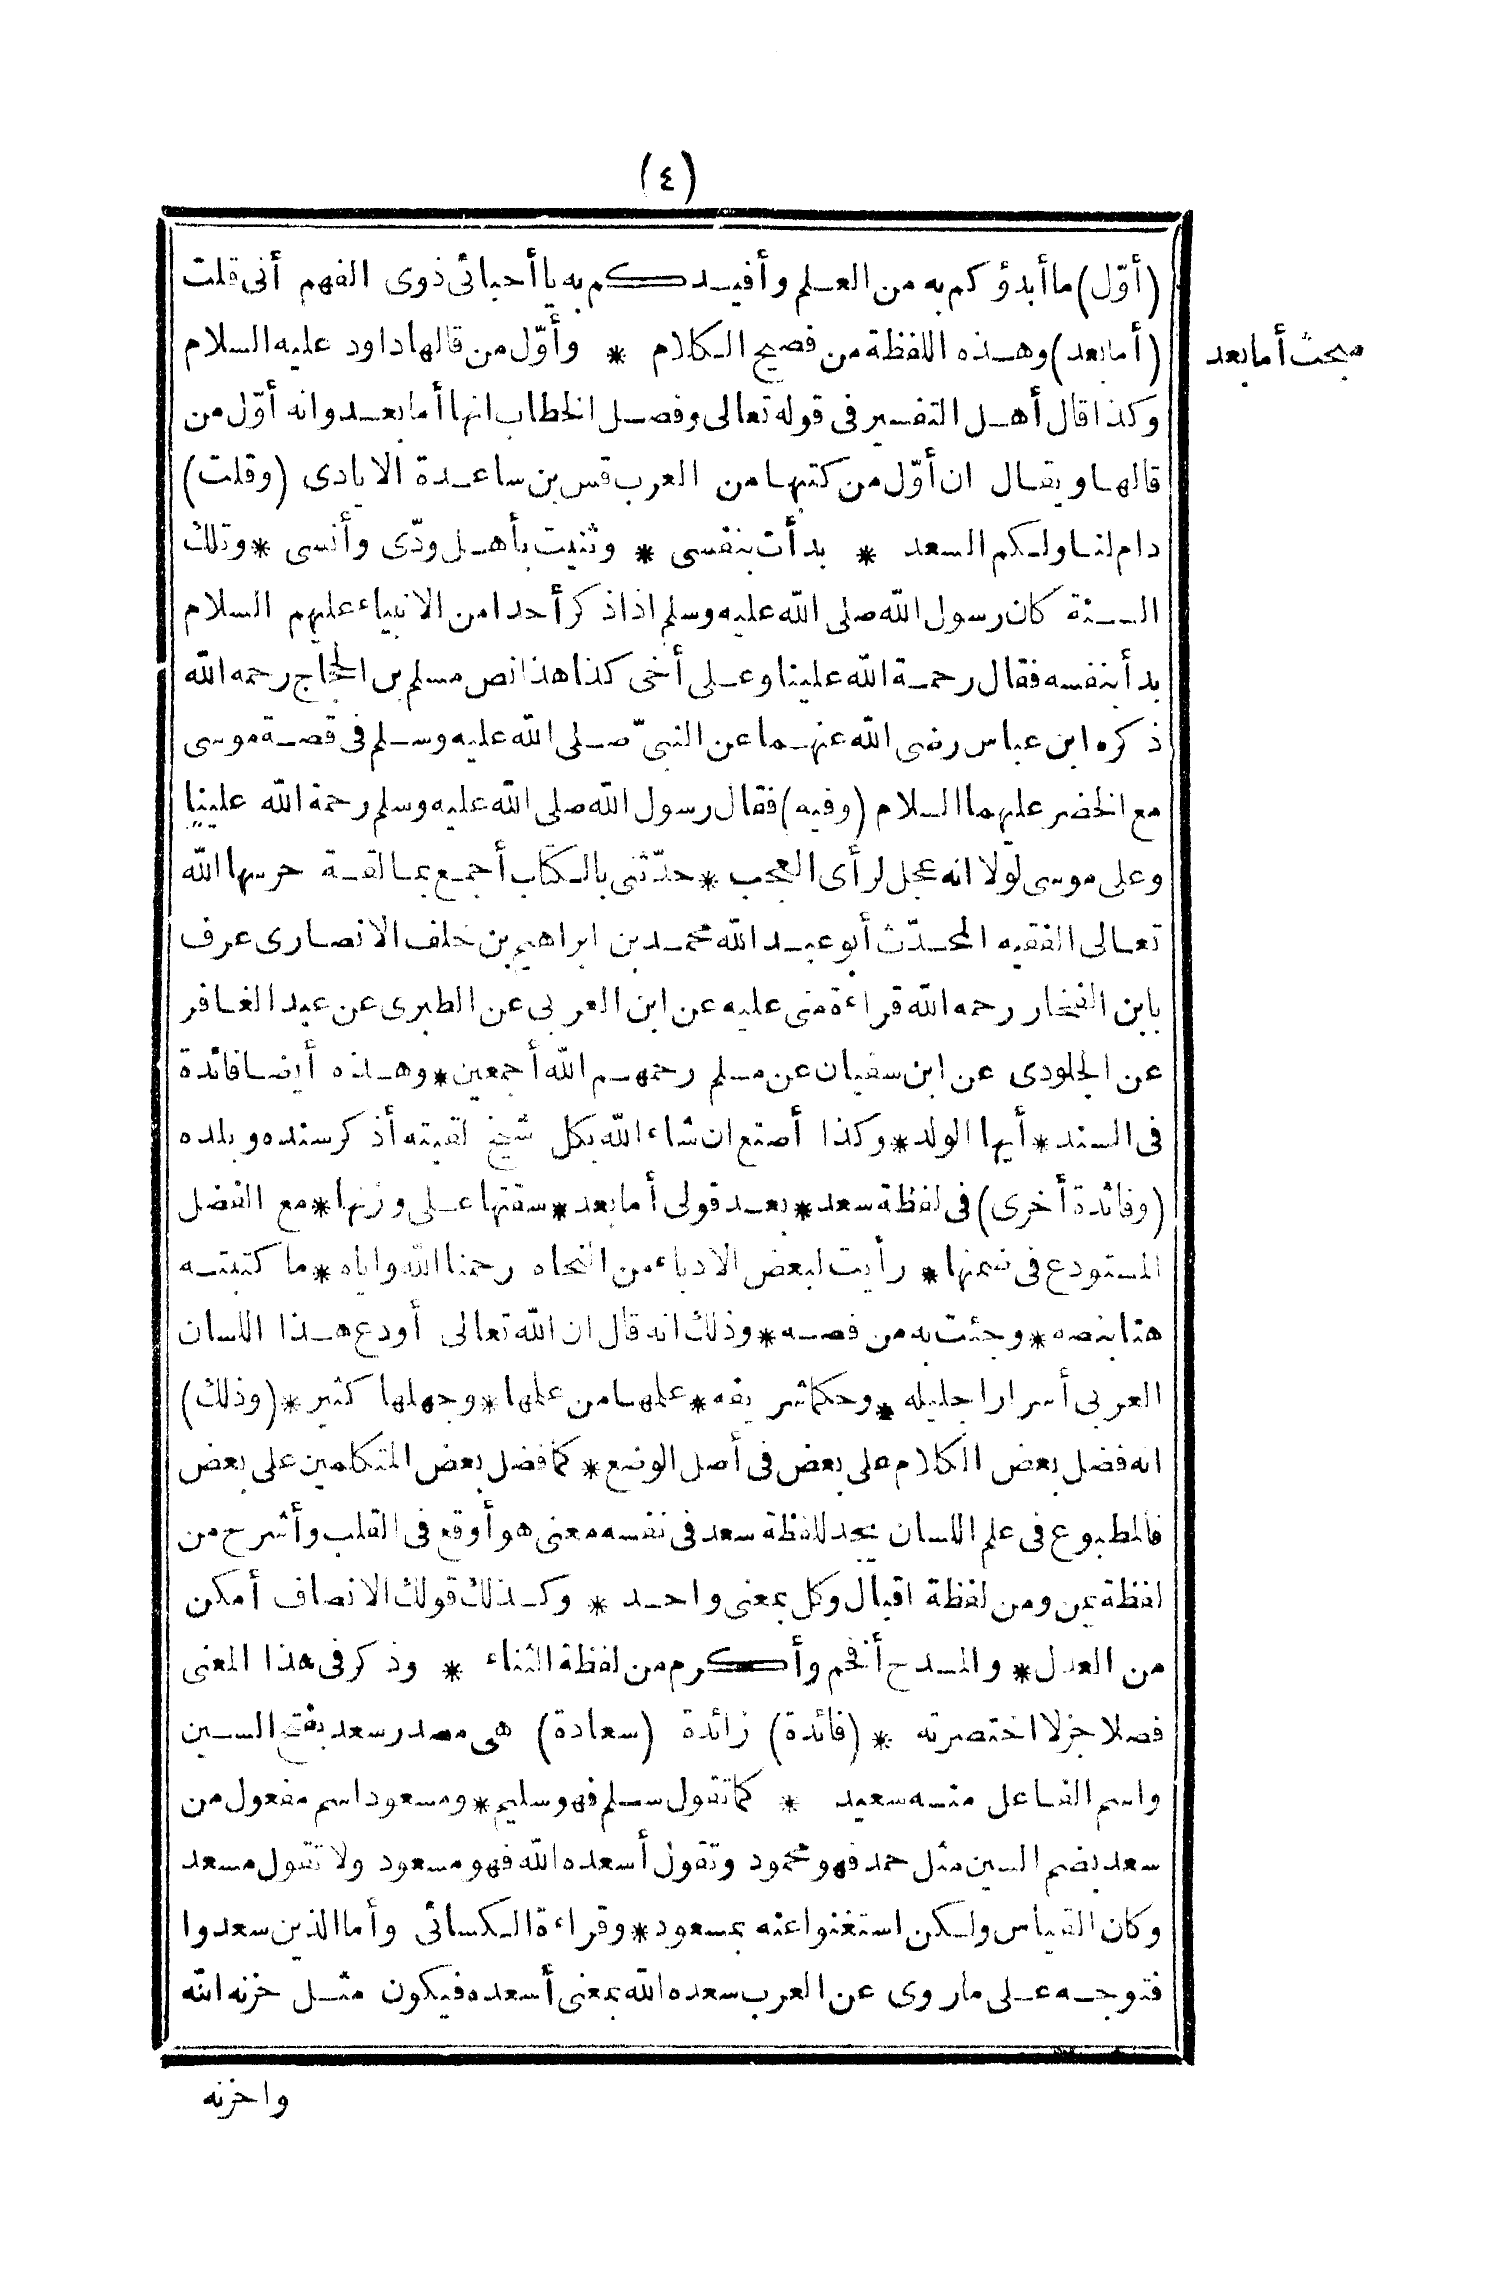 (٤)
(أوّل) ما أبدؤكم به من العلم وأفيدكم به يا أحبائى ذوى الفهم أنى قلت
(أما بعد) وهذه اللفظة من فصيح الكلام * وأوّل من قالها داود عليه السلام
مبحث أما بعد
وكذا قال أهل التفسير فى قوله تعالى وفصل الخطاب انها أما بعد وانه أوّل من
قالها ويقال ان أوّل من كتبها من العرب قس بن ساعدة الايادى (وقلت)
دام لنا ولكم السعد * بدأت بنفسى * وثنيت بأهل ودّى وأنسى * وتلك
السنة كان رسول الله صلى الله عليه وسلم اذا ذكر أحدا من الانبياء عليهم السلام
بدأ بنفسه فقال رحمة الله علينا وعلى أخى كذا هذا نص مسلم بن الحجاج رحمه الله
ذكره ابن عباس رضى الله عنهما عن النبىّ صلى الله عليه وسلم فى قصة موسى
مع الخضر عليهما السلام (وفيه) فقال رسول الله صلى الله عليه وسلم رحمة الله علينا
وعلى موسى لولا انه عجل لرأى العجب * حدّثنى بالكتاب أجمع بمالقة حرسها الله
تعالى الفقيه المحدّث أبو عبد الله محمد بن ابراهيم بن خلف الانصارى عرف
بابن الفخار رحمه الله قراءة منى عليه عن ابن العربى عن الطبرى عن عبد الغافر
عن الجلودى عن ابن سفيان عن مسلم رحمهم الله أجمعين * وهذه أيضا فائدة
فى السند * أيها الولد * وكذا أصنع ان شاء الله بكل شيخ لقيته أذكر سنده وبلده
(وفائدة أخرى) فى لفظة سعد * بعد قولى أما بعد * سقتها على وزنها * مع الفضل
المستودع فى ضمنها * رأيت لبعض الادباء من النحاه رحمنا الله واياه * ما كتبته
هنا بنصه * وجئت به من فصه * وذلك انه قال ان الله تعالى أودع هذا اللسان
العربى أسرارا جليله * وحكما شريفه * علمها من علمها * وجهلها كثير * (وذلك)
انه فضل بعض الكلام على بعض فى أصل الوضع * كما فضل بعض المتكلمين على بعض
فالمطبوع فى علم اللسان يجد للفظة سعد فى نفسه معنى هو أوقع فى القلب وأشرح من
لفظة يمن ومن لفظة اقبال وكل بمعنى واحد * وكذلك قولك الانصاف أمكن
من العدل * والمدح أفخم وأكرم من لفظة الثناء * وذكر فى هذا المعنى
فصلا جزلا اختصرته * (فائدة) زائدة (سعادة) هى مصدر سعد بفتح السين
واسم الفاعل منه سعيد * كما تقول سلم فهو سليم * ومسعود اسم مفعول من
سعد بضم السين مثل حمد فهو محمود وتقول أسعده الله فهو مسعود ولا تقول مسعد
وكان القياس ولكن استغنوا عنه بمسعود * وقراءة الكسائى وأما الذين سعدوا
فتوجه على ما روى عن العرب سعده الله بمعنى أسعده فيكون مثل حزنه الله
واحزنه